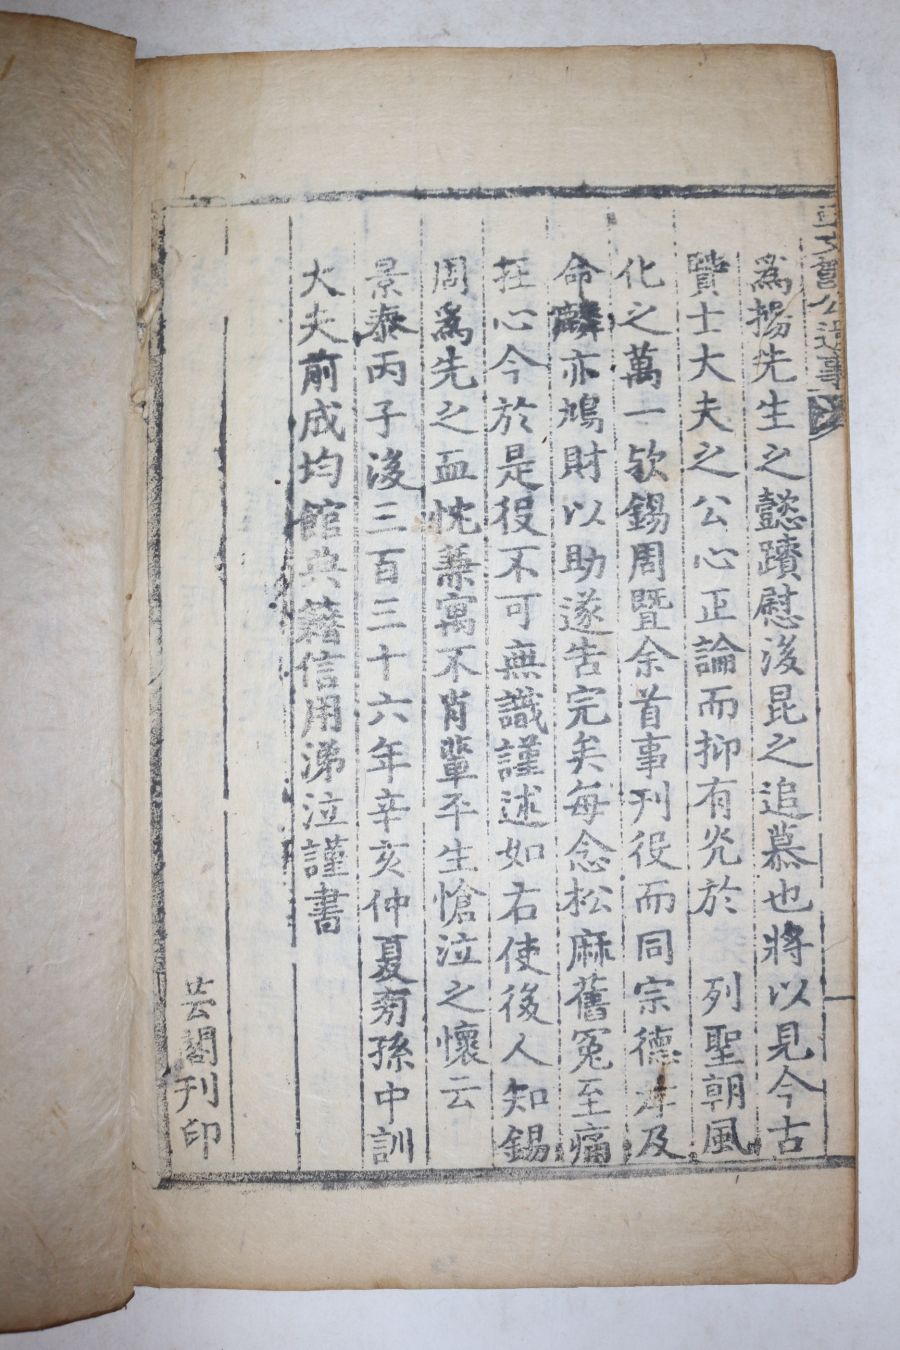 爲揚先生之懿蹟慰後昆之追慕也將以見今古
賢士大夫之公心正論而抑有光於 列聖朝風
化之萬一欤錫周曁余首事刊役而同宗德峻及
命麟亦鳩財以助遂告完矣每念松麻舊冤至痛
在心今於是役不可無識謹述如右使後人知錫
周爲先之血忱兼寓不肖輩平生愴泣之懷云
景泰丙子後三百三十六年辛亥仲夏旁孫中訓
大夫前成均館典籍信用涕泣謹書
芸閣刊印
公遺事